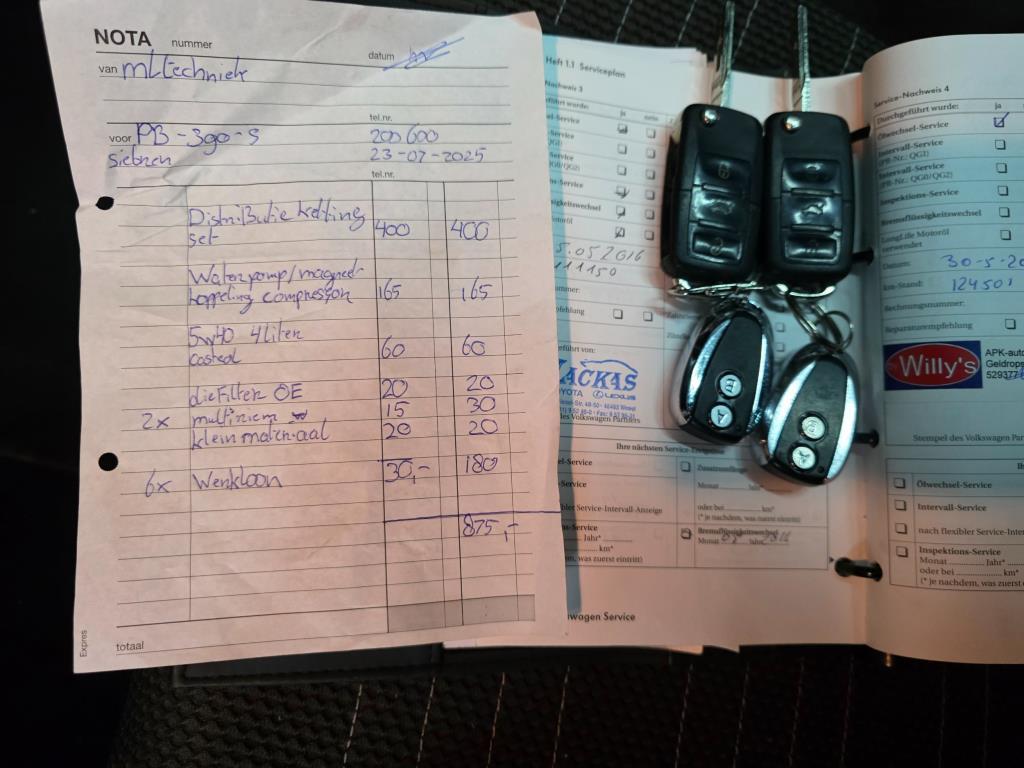 NOTA nummer datum
van mLtechniek
tel.nr.
voor PB-390-S 200600
siebren 23-07-2025
tel.nr.
Distributie ketting
set 400 400
Waterpomp/magneet
koppeling compressor 165 165
5w40 4liter
castrol 60 60
oliefilter OE 20 20
2x multiriem 15 30
klein materiaal 20 20
6x Werkloon 30,- 180
875,-
totaal
Expres
Heft 1.1 Serviceplan
Nachweis 3
ja nein
5.05 2016
111150
YACKAS
TOYOTA LEXUS
des Volkswagen Partners
oder bei km*
(* je nachdem, was zuerst eintritt)
Service-Intervall-Anzeige
Bremsflüssigkeitswechsel
Monat Jahr
Jahr*
km*
was zuerst eintritt)
wagen Service
Service-Nachweis 4
Durchgeführt wurde: ja
Ölwechsel-Service
Intervall-Service
(PR-Nr.: QG1)
Intervall-Service
(PR-Nr.: QG0/QG2)
Inspektions-Service
Bremsflüssigkeitswechsel
LongLife Motoröl
verwendet
Datum: 30-5-20
km-Stand: 124501
Rechnungsnummer:
Reparaturempfehlung
Willy's
APK-auto
Geldrops
Stempel des Volkswagen Partn
Ölwechsel-Service
Intervall-Service
nach flexibler Service-Inter
Inspektions-Service
Monat Jahr*
oder bei km*
(* je nachdem, was zuerst e